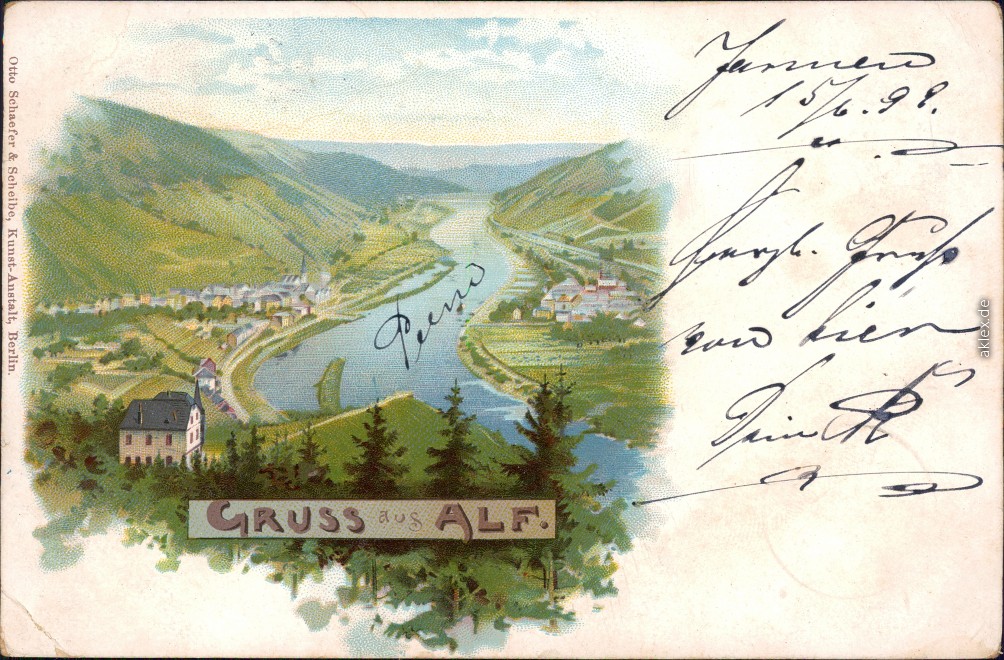 Otto Schaefer & Scheibe, Kunst-Anstalt, Berlin.
15/6.98.
Herzl. Gruß
von hier
Dein
GRUSS aus ALF.
aklex.de